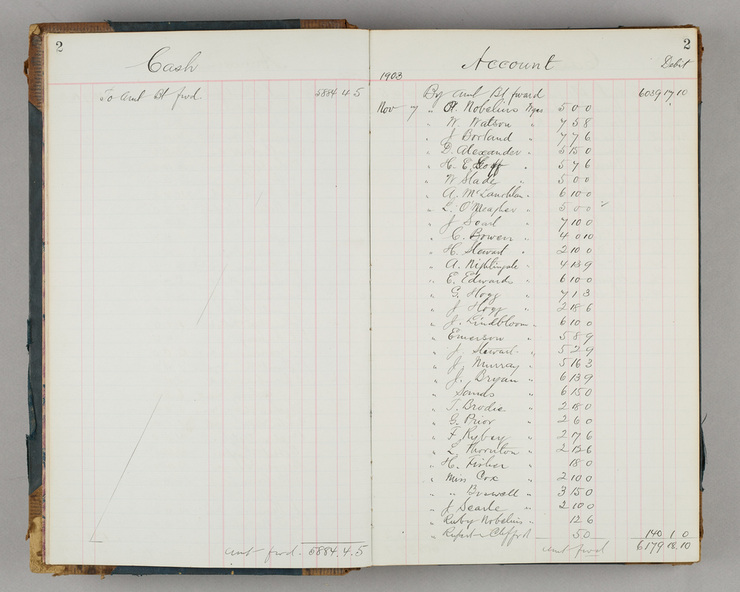 2
Cash
To Amt Bt fwd 5884.4.5
Amt fwd. 5884.4.5
2
Account
Debit
1903
By Amt Bt forward 6039.17.10
Nov 7 " A. Nobelius Wges 5 0 0
" W. Watson " 7 5 8
" J Borland " 7 7 6
" D. Alexander " 5 15 0
" H. E. Goff " 5 7 6
" W Slade " 5 0 0
" A McLauchlan " 6 10 0
" L. O'Meagher " 5 0 0
" J Searl " 7 10 0
" C. Bowen " 4 0 10
" H. Stewart " 2 10 0
" A. Nightingale " 4 13 9
" E. Edwards " 6 10 0
" G. Hogg " 7 1 3
" J Hogg " 2 18 6
" J. Lindbloom " 6 10 0
" Emerson " 5 8 9
" J. Stewart " 5 2 9
" J. Murray " 5 16 3
" J. Bryan " 6 13 9
" Sands " 6 15 0
" T. Brodie " 2 18 0
" G. Prior " 2 6 0
" F. " 2 7 6
" L. Thornton " 2 12 6
" H. Fisher " 18 0
" Miss Cox " 2 10 0
" " 3 15 0
" J Searle " 2 10 0
" Ruby Nobelius " 12 6
" Rupert Clifford 5 0 140 1 0
Amt fwd 6179.18.10